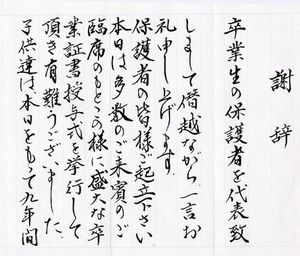 謝辞
卒業生の保護者を代表致
しまして僭越ながら一言お
礼申し上げます。
保護者の皆様ご起立下さい。
本日は多数のご来賓のご
臨席のもとこの様に盛大な卒
業証書授与式を挙行して
頂き有難うございました。
子供達は本日をもって九年間